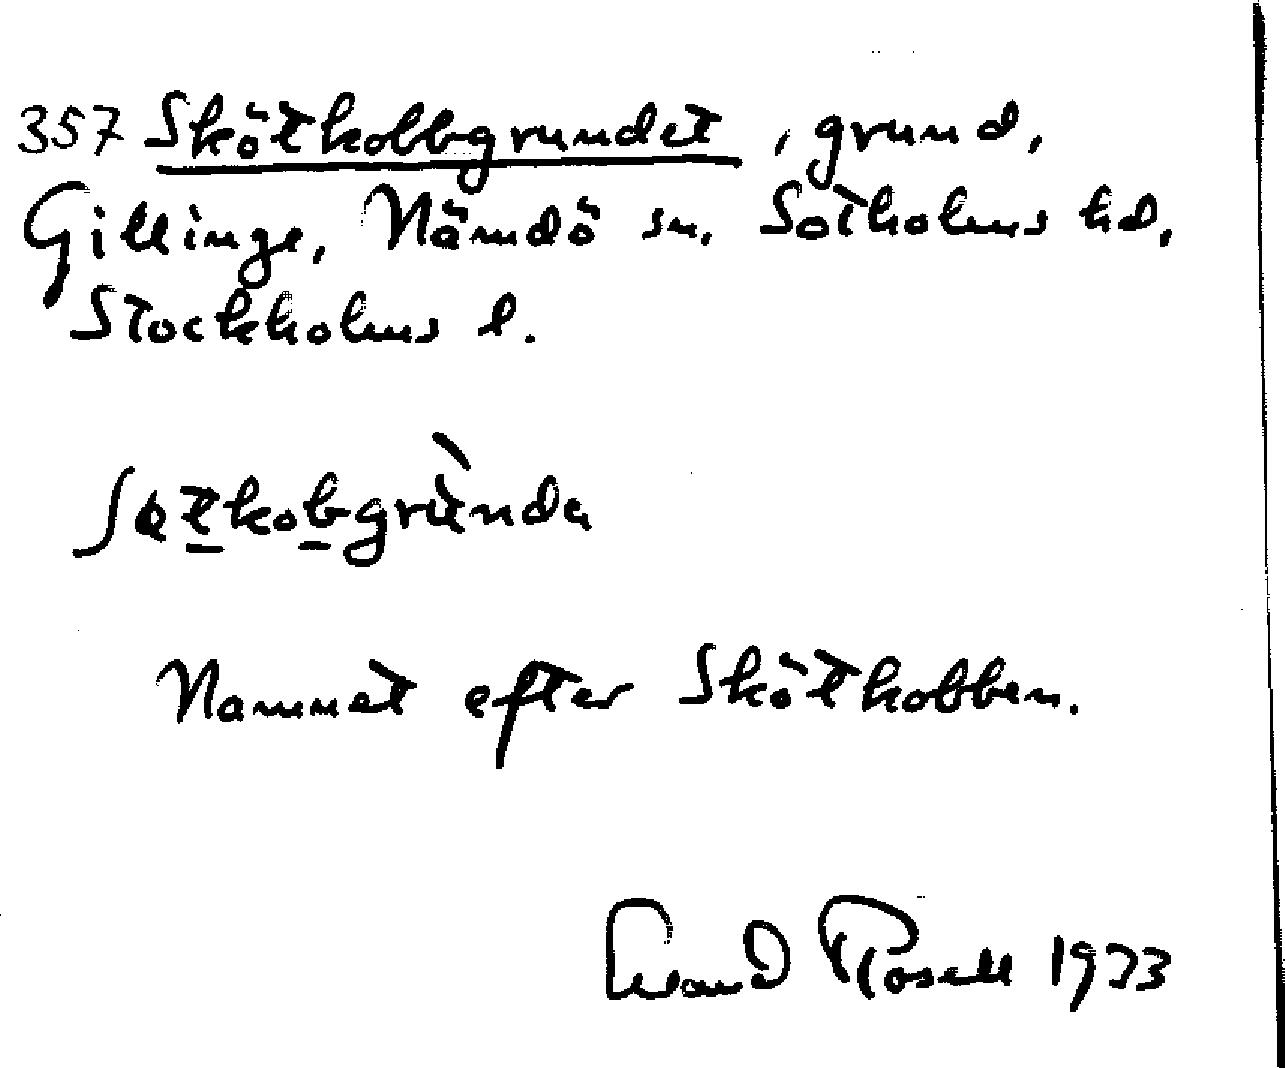 357 Skötkobbgrundet, grund,
Gillinge, Nämdö sn, Sotholms hd,
Stockholms l.
ʃɵtkobgrùnda
Namnet efter Skötkobben.
Rosell 1973